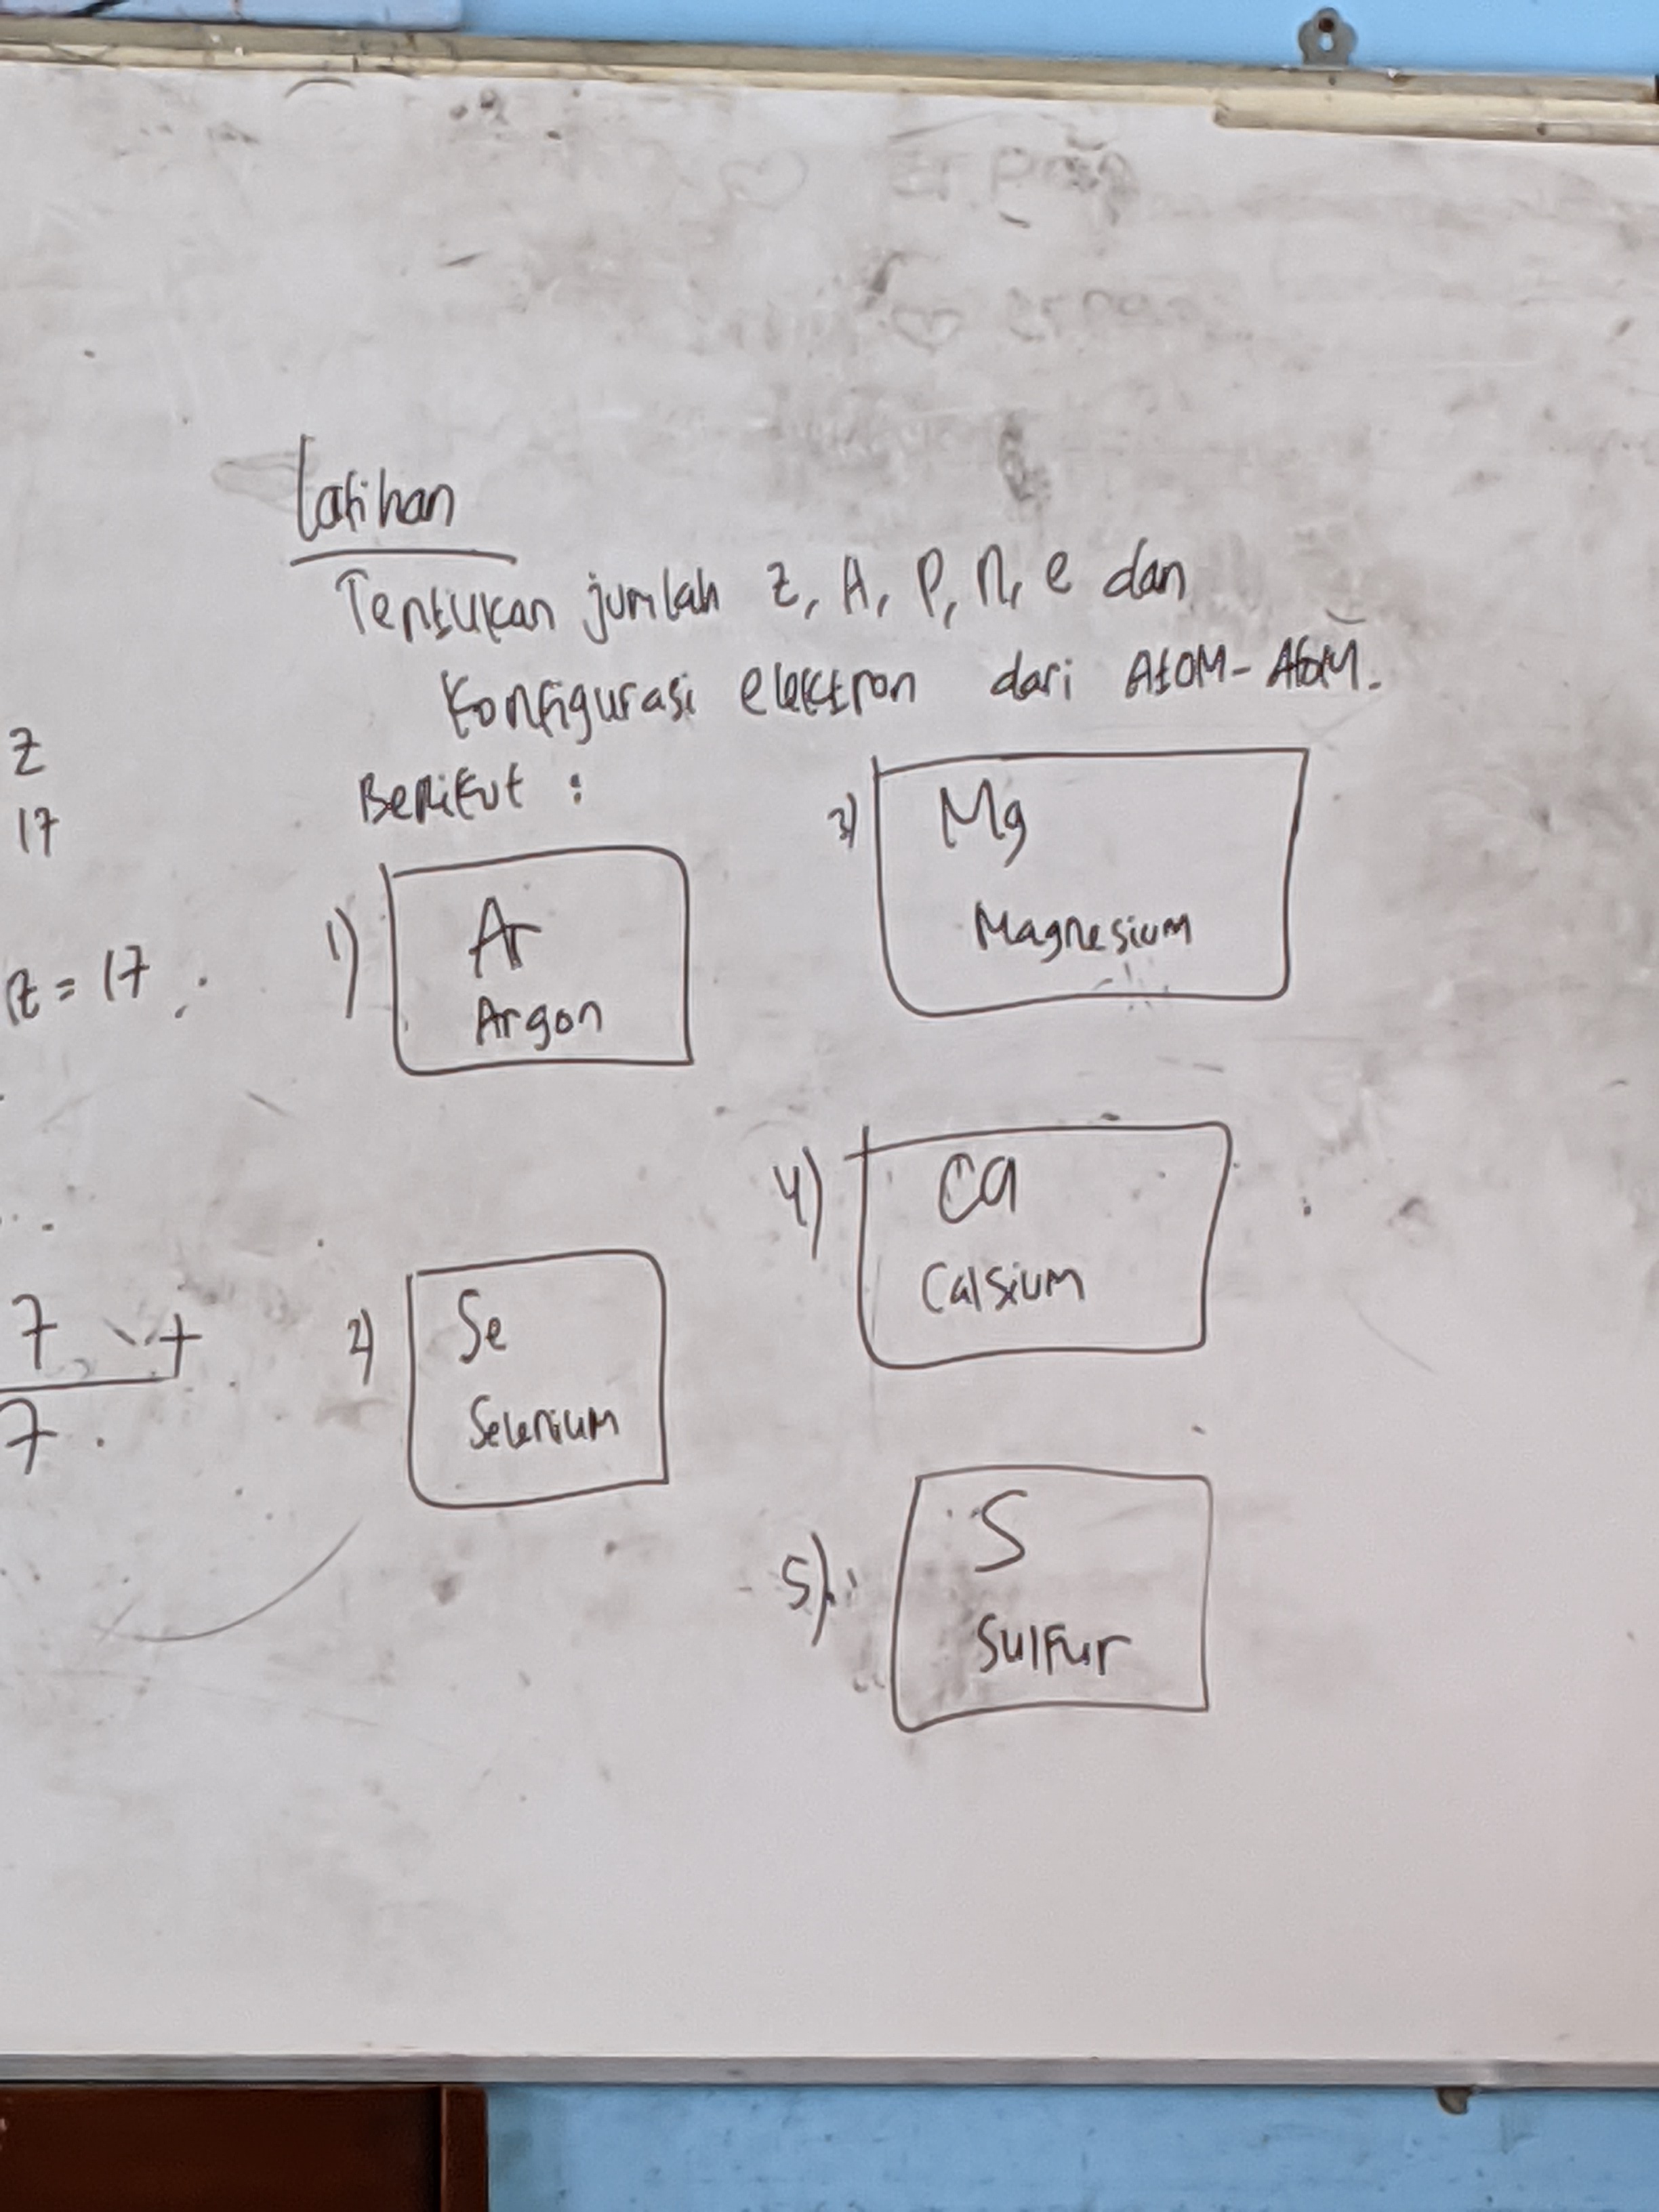 Latihan
Tentukan jumlah Z, A, P, n, e dan
Konfigurasi elektron dari Atom-Atom.
Berikut :
Z
17
= 17
1)
Ar
Argon
2)
Se
Selenium
3)
Mg
Magnesium
4)
Ca
Calsium
5)
S
Sulfur
7 +
7